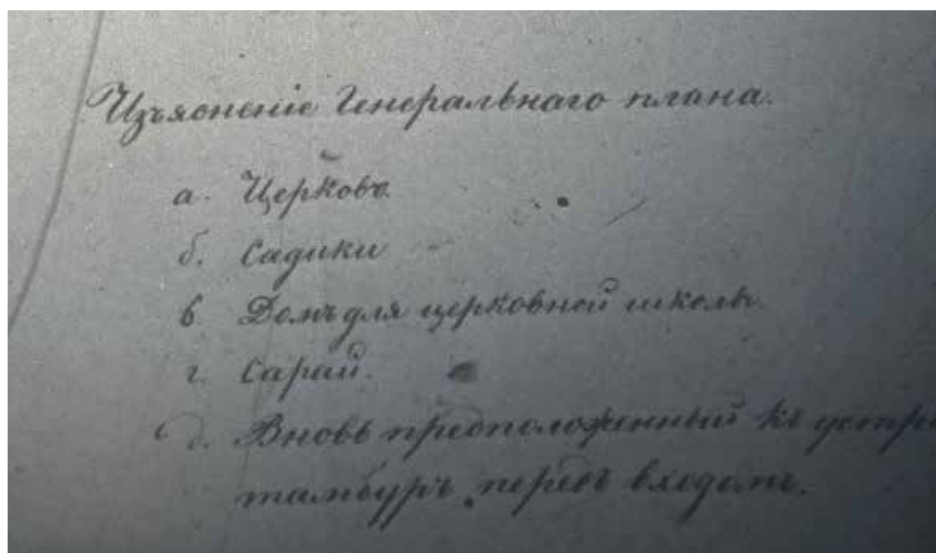 Изъясненіе Генеральнаго плана.
а. Церковь.
б. Садики
в. Домъ для церковной школы.
г. Сарай.
д. Вновь предположенный къ устро
тамбуръ передъ входомъ.